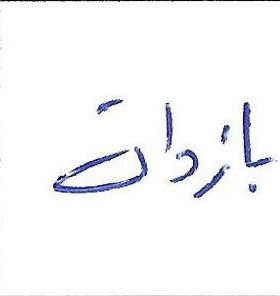 بازدات